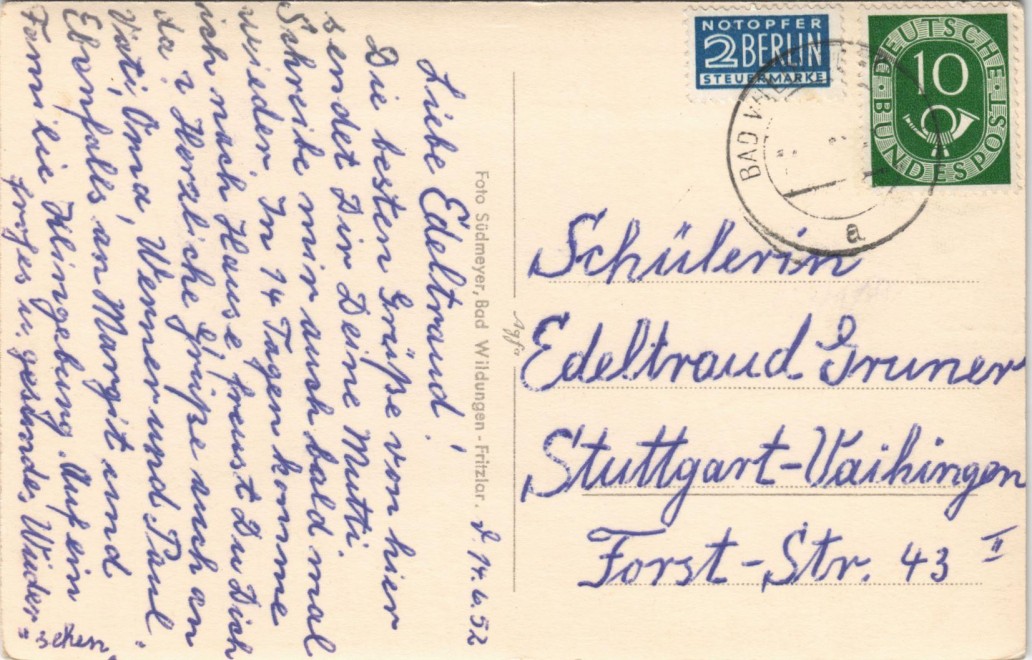 d. 14.6.52
Liebe Edeltraud!
Die besten Grüße von hier
sendet Dir Deine Mutti.
Schreibe mir auch bald mal
wieder. In 14 Tagen komme
ich nach Hause freust Du Dich
da? Herzliche Grüße auch an
Vati, Oma, Werner und Paul.
Ebenfalls an Margit und
Familie Klingebung. Auf ein
frohes u. gesundes Wieder
=sehen
Foto Südmeyer, Bad Wildungen - Fritzlar.
Agfa
NOTOPFER
2 BERLIN
STEUERMARKE
DEUTSCHE BUNDESPOST
10
BAD
a
Schülerin
Edeltraud Gruner
Stuttgart-Vaihingen
Forst-Str. 43 II